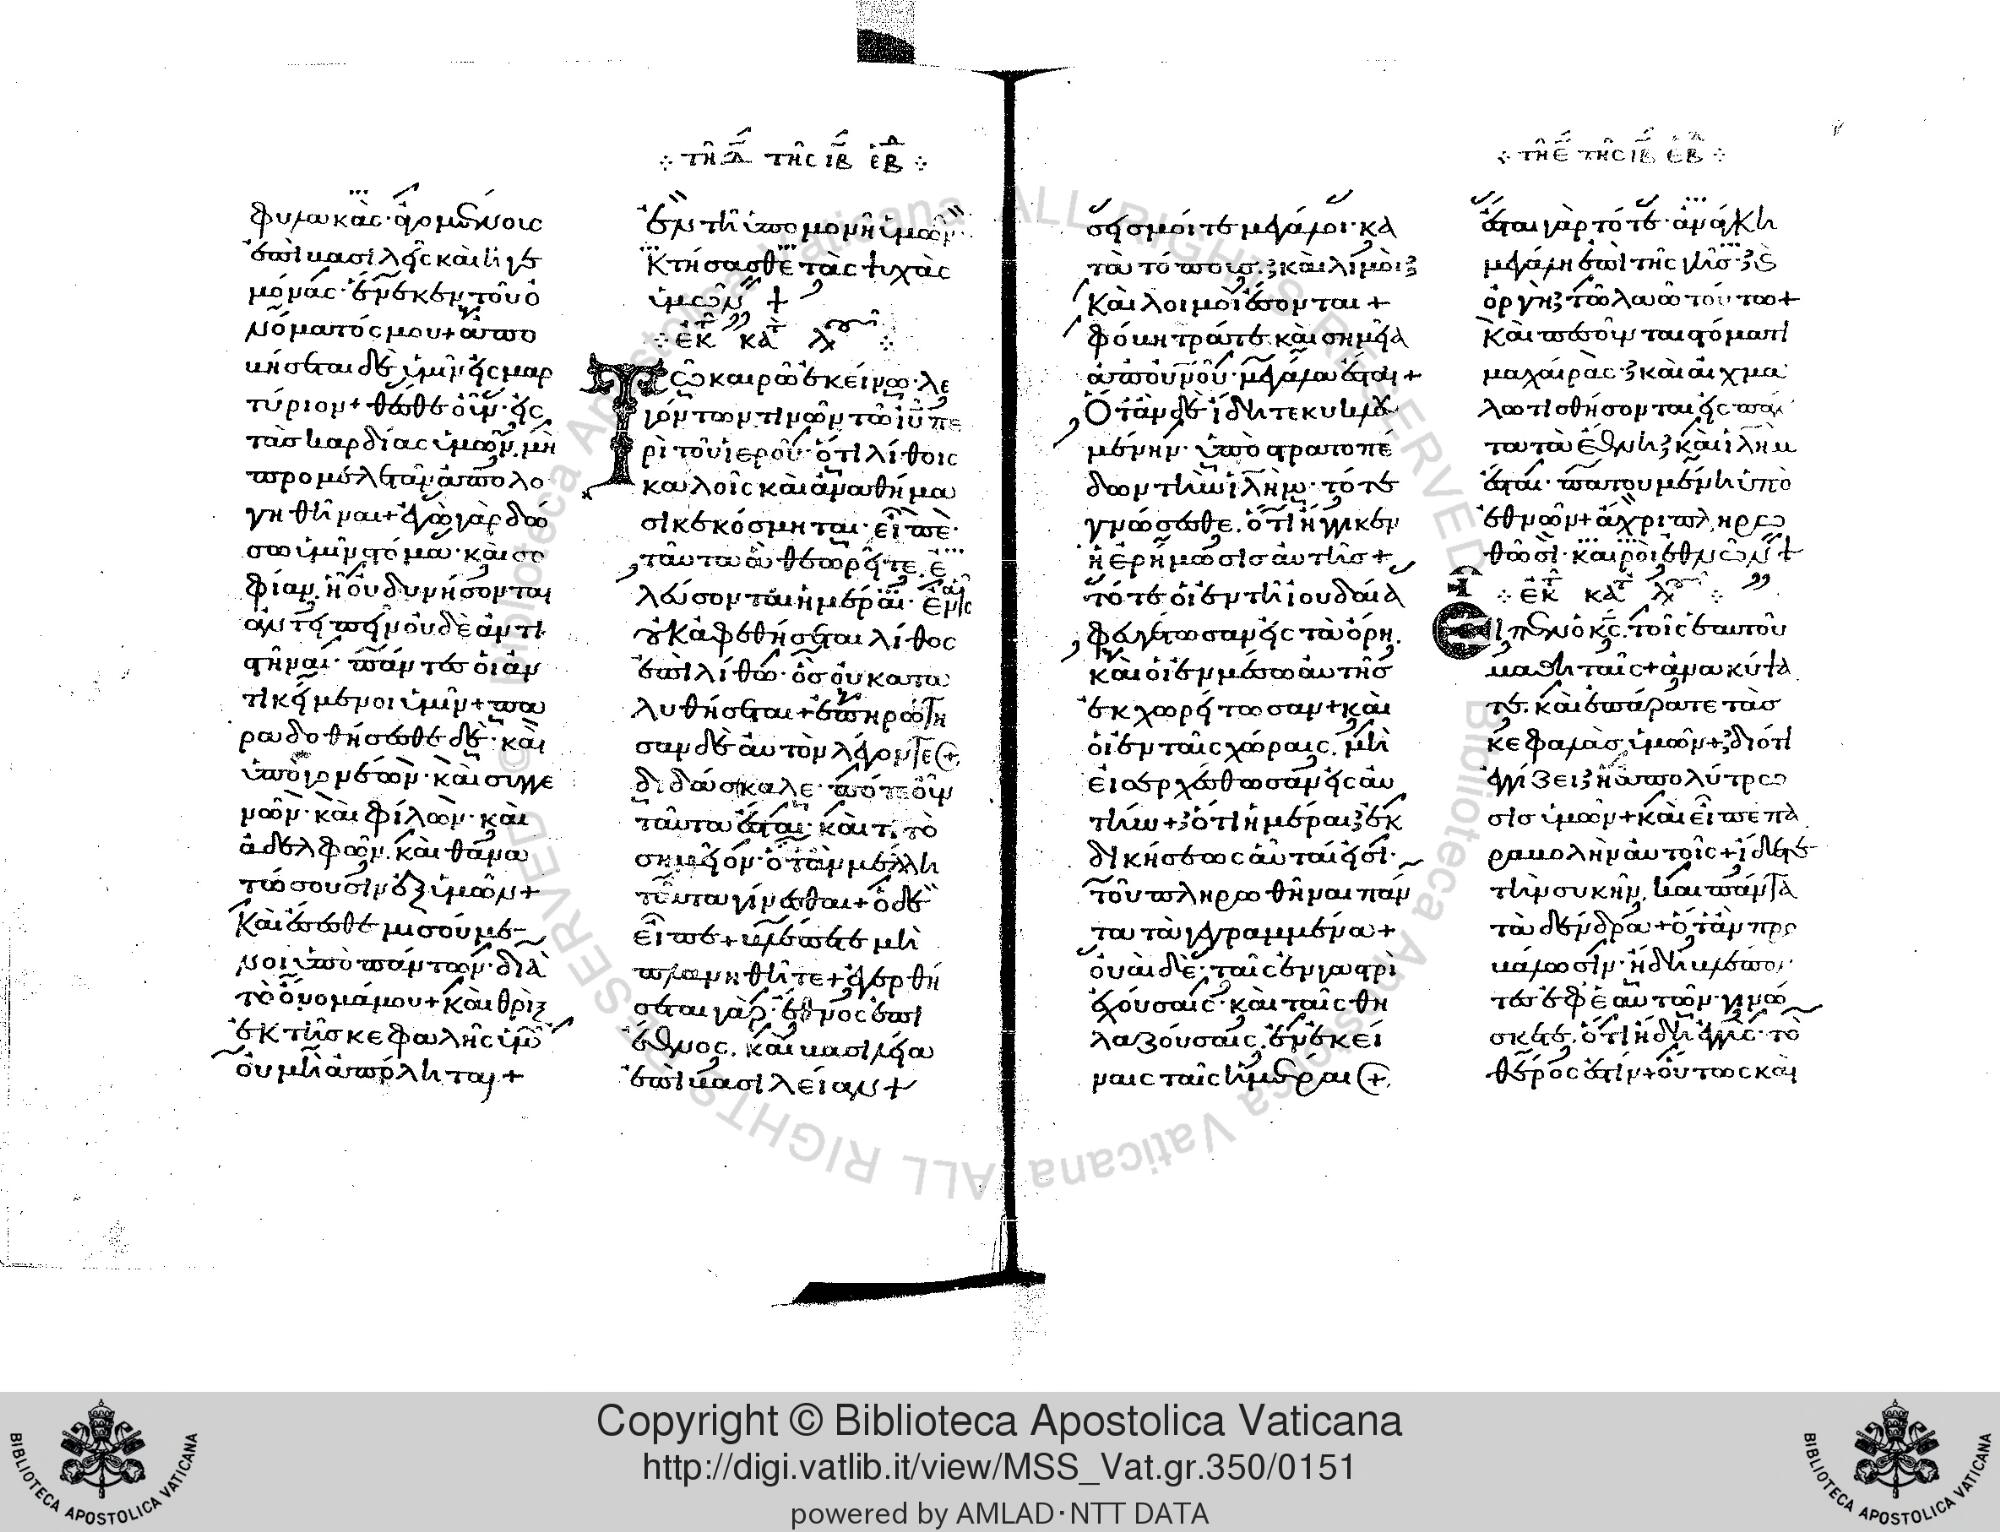 φυλακὰς· ἀγομένους
ἐπὶ βασιλεῖς καὶ ἡγε
μόνας· ἕνεκεν τοῦ ὀ
νόματός μου + ἀπο
βήσεται δὲ ὑμῖν εἰς μαρ
τύριον + θέσθε οὖν εἰς
τὰς καρδίας ὑμῶν, μὴ
προμελετᾶν ἀπολο
γηθῆναι + ἐγὼ γὰρ δώ
σω ὑμῖν στόμα· καὶ σο
φίαν, ᾗ οὐ δυνήσονται
ἀντειπεῖν οὐδὲ ἀντι
στῆναι· πάντες οἱ ἀν
τικείμενοι ὑμῖν + πα
ραδοθήσεσθε δὲ· καὶ
ὑπὸ γονέων· καὶ συγγε
νῶν· καὶ φίλων· καὶ
ἀδελφῶν, καὶ θανα
τώσουσιν ἐξ ὑμῶν +
Καὶ ἔσεσθε μισούμε
νοι ὑπὸ πάντων· διὰ
τὸ ὄνομά μου + καὶ θρὶξ
ἐκ τῆς κεφαλῆς ὑμῶ
οὐ μὴ ἀπόληται +
τῇ Δ τῆς ιβ ἑβ
ἐν τῇ ὑπομονῇ ὑμῶν·
Κτήσασθε τὰς ψυχὰς
ὑμῶν +
ἐκ κατ λκ
Τῷ καιρῷ ἐκείνῳ· λε
γόντων τινῶν τῷ ιυ πε
ρὶ τοῦ ἱεροῦ· ὅτι λίθοις
καλοῖς καὶ ἀναθήμα
σι κεκόσμηται· εἶπε·
ταῦτα ἃ θεωρεῖτε, ἐ
λεύσονται ἡμέραι· ἐν αἷς
οὐκ ἀφεθήσεται λίθος
ἐπὶ λίθῳ· ὃς οὐ κατα
λυθήσεται + ἐπηρώτη
σαν δὲ αὐτὸν λέγοντες +
διδάσκαλε· πότε οὖν
ταῦτα ἔσται· καὶ τί τὸ
σημεῖον· ὅταν μέλλη
ταῦτα γίνεσθαι + ὁ δὲ
εἶπε + βλέπετε μὴ
πλανηθῆτε + ἐγερθή
σεται γὰρ· ἔθνος ἐπὶ
ἔθνος, καὶ βασιλεία
ἐπὶ βασιλείαν +
σεισμοί τε μεγάλοι· κα
τὰ τόπους, καὶ λιμοὶ
Καὶ λοιμοὶ ἔσονται +
φόβητρά τε καὶ σημεῖα
ἀπ' οὐνοῦ· μεγάλα ἔσται +
Ὅταν δὲ ἴδητε κυκλου
μένην· ὑπὸ στρατοπέ
δων τὴν ιλημ· τότε
γνώσεσθε, ὅτι ἤγγικεν
ἡ ἐρήμωσις αὐτῆς +
τότε οἱ ἐν τῇ ἰουδαία
φευγέτωσαν εἰς τὰ ὄρη,
καὶ οἱ ἐν μέσω αὐτῆς
ἐκχωρείτωσαν + καὶ
οἱ ἐν ταῖς χώραις, μὴ
εἰσερχέσθωσαν εἰς αὐ
τήν + ὅτι ἡμέραι ἐκ
δικήσεως αὗταί εἰσι·
τοῦ πληρωθῆναι πάν
τα τὰ γεγραμμένα +
οὐαὶ δὲ· ταῖς ἐν γαστρὶ
ἐχούσαις· καὶ ταῖς θη
λαζούσαις, ἐν ἐκεί
ναις ταῖς ἡμέραις +
τῇ Ε τῆς ιβ ἑβ
ἔσται γὰρ τότε· ἀνάγκη
μεγάλη ἐπὶ τῆς γῆς
ὀργὴ τῷ λαῷ τούτω +
Καὶ πεσοῦνται στόματι
μαχαίρας· καὶ αἰχμα
λωτισθήσονται εἰς πάν
τα τὰ ἔθνη· καὶ ιλημ
ἔσται· πατουμένη ὑπὸ
ἐθνῶν + ἄχρι πληρω
θῶσι· καιροὶ ἐθνῶν +
ἐκ κατ λκ
Εἶπεν ὁ κς, τοῖς ἑαυτοῦ
μαθηταῖς + ἀνακύψα
τε, καὶ ἐπάρατε τὰς
κεφαλὰς ὑμῶν + διότι
ἐγγίζει ἡ ἀπολύτρω
σις ὑμῶν + καὶ εἶπε πα
ραβολὴν αὐτοῖς + ἴδετε
τὴν συκῆν, καὶ πάντα
τὰ δένδρα + ὅταν προ
βάλωσιν· ἤδη βλέπον
τες ἐφ' ἑαυτῶν· γινώ
σκετε, ὅτι ἤδη ἐγγὺς· τὸ
θέρος ἐστίν + οὕτως καὶ
Biblioteca Apostolica Vaticana ALL RIGHTS RESERVED
© Biblioteca Apostolica Vaticana ALL RIGHTS RESERVED
BIBLIOTECA APOSTOLICA VATICANA
Copyright © Biblioteca Apostolica Vaticana
http://digi.vatlib.it/view/MSS_Vat.gr.350/0151
powered by AMLAD·NTT DATA
BIBLIOTECA APOSTOLICA VATICANA